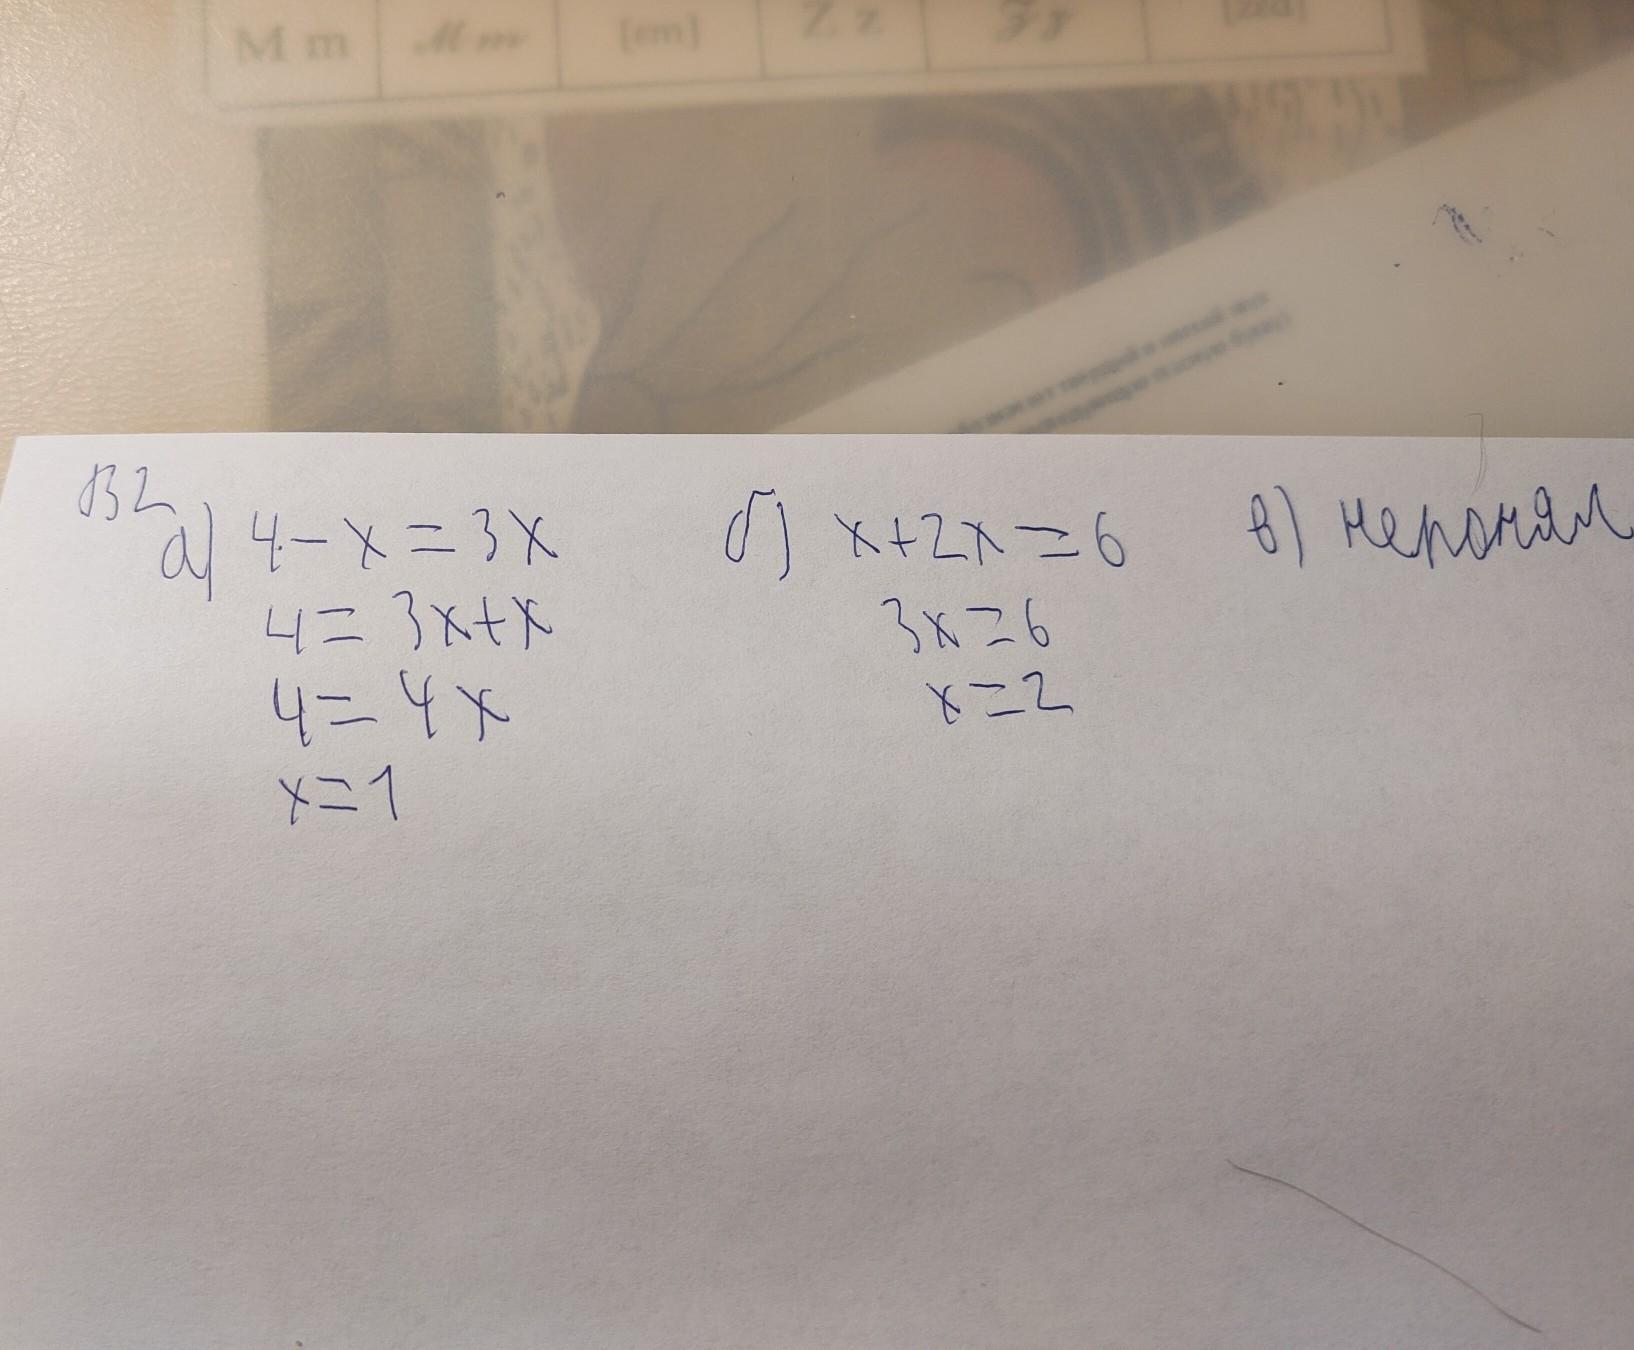 M m M m [em] Z z Z z [zed]
В2
а) 4-x=3x
4=3x+x
4=4x
x=1
б) x+2x=6
3x=6
x=2
в) непонял